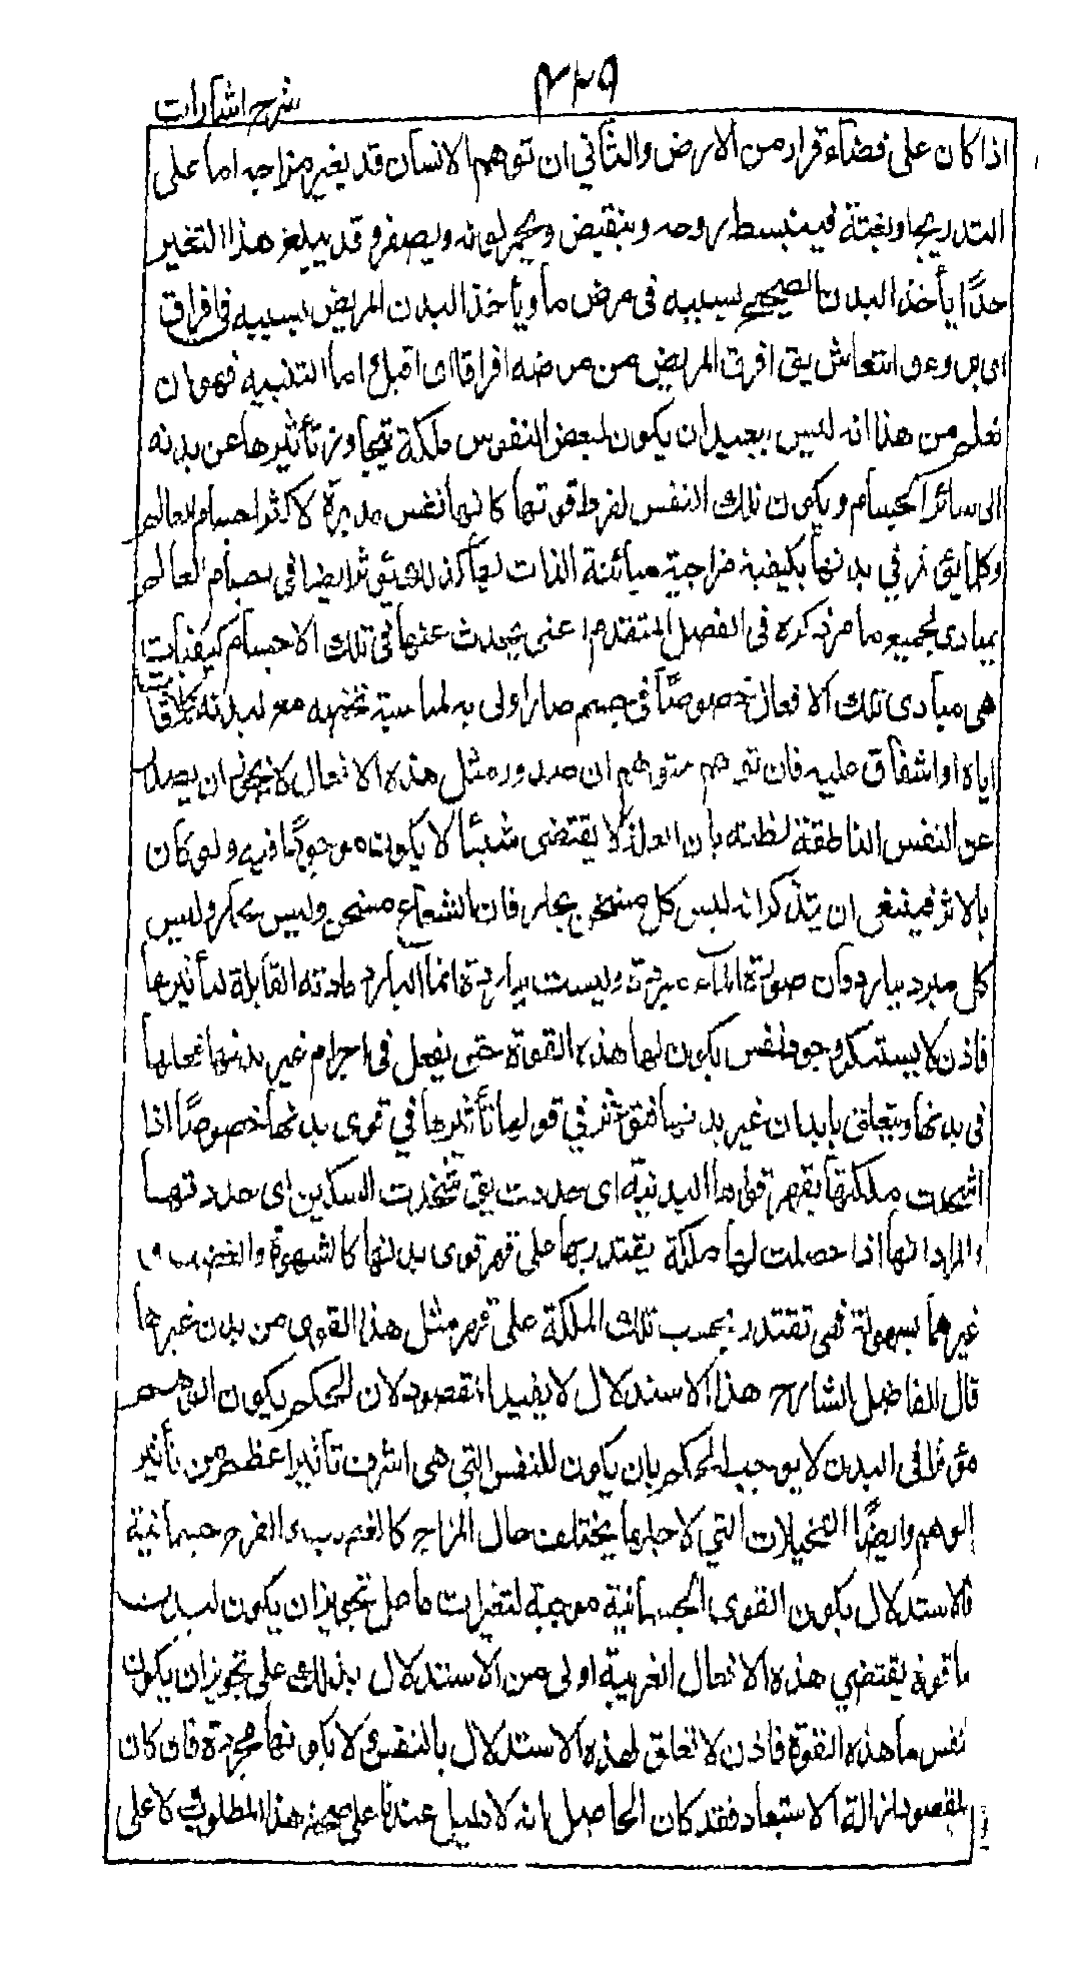 شرح اشارات
اذا كان على فضاء قرار من الارض والثاني ان توهم الانسان قد يغير مزاجه اما على
التدريج او بغتة فينبسط روحه وينقبض ويحمر لونه ويصفر وقد يبلغ هذا التغير
حدًّا يأخذ البدن الصحيح بسببه فى مرض ما ويأخذ البدن المريض بسببه فى افراق
اى برء وانتعاش يق افرق المريض من مرضه افراقا اى اقبل اما التنبيه فهو ان
نعلم من هذا انه ليس ببعيد ان يكون لبعض النفوس ملكة يتجاوز تأثيرها عن بدنه
الى سائر الاجسام ويكون تلك النفس لفرط قوتها كانها نفس مدبرة لاكثر اجسام العالم
وكما يؤثر في بدنها بكيفية مزاجية مبائنة الذات لها كذلك يؤثر ايضا فى اجسام العالم
بمبادى لجميع ما مر ذكره فى الفصل المتقدم اعنى يحدث عنها فى تلك الاجسام كيفيات
هى مبادى تلك الافعال خصوصًا فى جسم صار اولى به لمناسبة تخصه مع بدنه كملاقات
اياه او اشفاق عليه فان توهم متوهم ان صدور مثل هذه الافعال لا يجوز ان يصدر
عن النفس الناطقة لظنه بان العلة لا يقتضى شيئًا لا يكون موجودًا فيه ولو كان
بالاثر فينبغى ان يتذكر انه ليس كل مسخن بحار فان الشعاع مسخن وليس بحار وليس
كل مبرد ببارد فان صورة الماء مبردة وليست بباردة انما البارد مادته القابلة لتأثيرها
فاذن لا يستنكر وجود نفس يكون لها هذه القوة حتى يفعل فى اجرام غير بدنها فعلها
فى بدنها ويتعلق بابدان غير بدنها فتؤثر في قواها تأثيرها في قوى بدنها خصوصًا اذا
شحذت ملكتها بقهر قواها البدنية اى حددت يق شحذت السكين اى حددتها
والمراد انها اذا حصلت لها ملكة يقتدر بها على قهر قوى بدنها كالشهوة والغضب و
غيرهما بسهولة فهى تقتدر بحسب تلك الملكة على قهر مثل هذا القوى من بدن غيرها
قال الفاضل الشارح هذا الاستدلال لا يفيد المقصود لان الحكم بكون الوهم
مؤثرا فى البدن لا يوجب الحكم بان يكون للنفس التي هى اشرف تأثيرا اعظم من تأثير
الوهم وايضًا التخيلات التي لاجلها يختلف حال المزاج كالغضب والفرح جسمانية
فالاستدلال بكون القوى الجسمانية موجبة لتغيرات ما على تجويز ان يكون لبدن
ما قوة يقتضي هذه الافعال الغريبة اولى من الاستدلال بذلك على تجويز ان يكون
لنفس ما هذه القوة فاذن لا تعلق لهذه الاستدلال بالنفس ولا بكونها مجردة فان كان
المقصود ازالة الاستبعاد فقد كان الحاصل انه لا دليل عندنا على صحة هذا المطلوب لا على